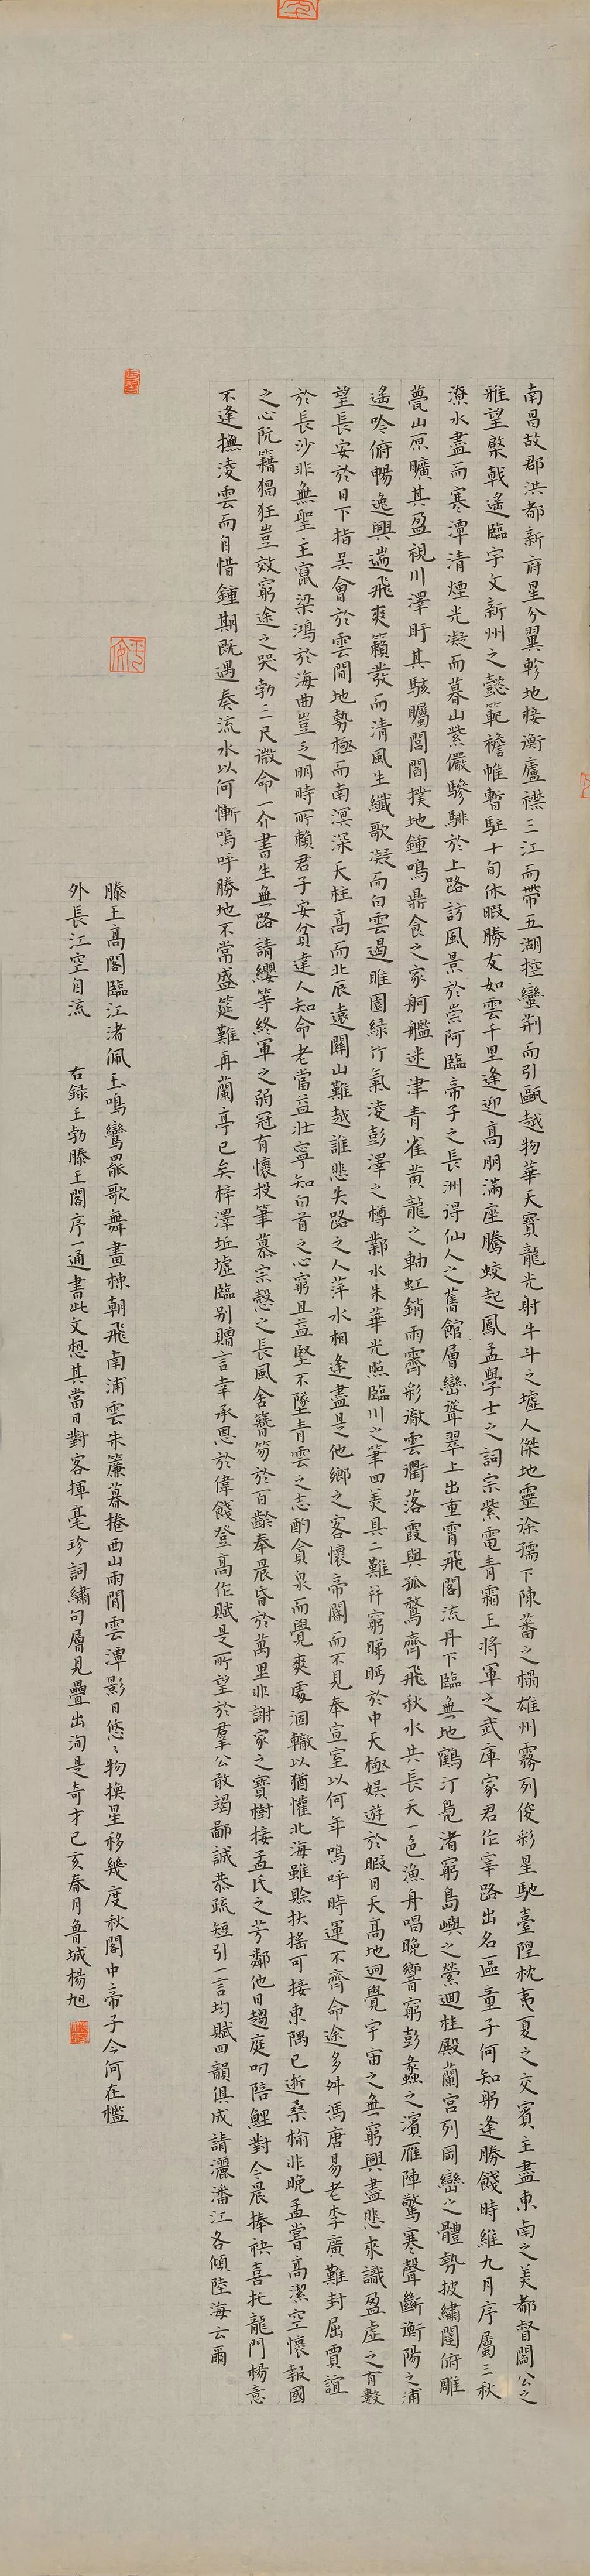 南昌故郡洪都新府星分翼軫地接衡廬襟三江而帶五湖控蠻荊而引甌越物華天寶龍光射牛斗之墟人傑地靈徐孺下陳蕃之榻雄州霧列俊彩星馳臺隍枕夷夏之交賓主盡東南之美都督閻公之
雅望棨戟遙臨宇文新州之懿範襜帷暫駐十旬休暇勝友如雲千里逢迎高朋滿座騰蛟起鳳孟學士之詞宗紫電青霜王將軍之武庫家君作宰路出名區童子何知躬逢勝餞時維九月序屬三秋
潦水盡而寒潭清煙光凝而暮山紫儼驂騑於上路訪風景於崇阿臨帝子之長洲得仙人之舊館層巒聳翠上出重霄飛閣流丹下臨無地鶴汀鳧渚窮島嶼之縈迴桂殿蘭宮列岡巒之體勢披繡闥俯雕
甍山原曠其盈視川澤盱其駭矚閭閻撲地鍾鳴鼎食之家舸艦迷津青雀黃龍之軸虹銷雨霽彩徹雲衢落霞與孤鶩齊飛秋水共長天一色漁舟唱晚響窮彭蠡之濱雁陣驚寒聲斷衡陽之浦
遙吟俯暢逸興遄飛爽籟發而清風生纖歌凝而白雲遏睢園綠竹氣淩彭澤之樽鄴水朱華光照臨川之筆四美具二難并窮睇眄於中天極娛遊於暇日天高地迥覺宇宙之無窮興盡悲來識盈虛之有數
望長安於日下指吳會於雲間地勢極而南溟深天柱高而北辰遠關山難越誰悲失路之人萍水相逢盡是他鄉之客懷帝閽而不見奉宣室以何年嗚呼時運不齊命途多舛馮唐易老李廣難封屈賈誼
於長沙非無聖主竄梁鴻於海曲豈乏明時所賴君子安貧達人知命老當益壯寧知白首之心窮且益堅不墜青雲之志酌貪泉而覺爽處涸轍以猶懽北海雖賒扶搖可接東隅已逝桑榆非晚孟嘗高潔空懷報國
之心阮籍猖狂豈效窮途之哭勃三尺微命一介書生無路請纓等終軍之弱冠有懷投筆慕宗慤之長風舍簪笏於百齡奉晨昏於萬里非謝家之寶樹接孟氏之芳鄰他日趨庭叨陪鯉對今晨捧袂喜托龍門楊意
不逢撫淩雲而自惜鍾期既遇奏流水以何慚嗚呼勝地不常盛筵難再蘭亭已矣梓澤坵墟臨別贈言幸承恩於偉餞登高作賦是所望於羣公敢竭鄙誠恭疏短引一言均賦四韻俱成請灑潘江各傾陸海云爾
滕王高閣臨江渚佩玉鳴鸞罷歌舞畫棟朝飛南浦雲朱簾暮捲西山雨閒雲潭影日悠〻物換星移幾度秋閣中帝子今何在檻
外長江空自流 右録王勃滕王閣序一通書此文想其當日對客揮毫珍詞繡句層見疊出洵是奇才己亥春月魯城楊旭